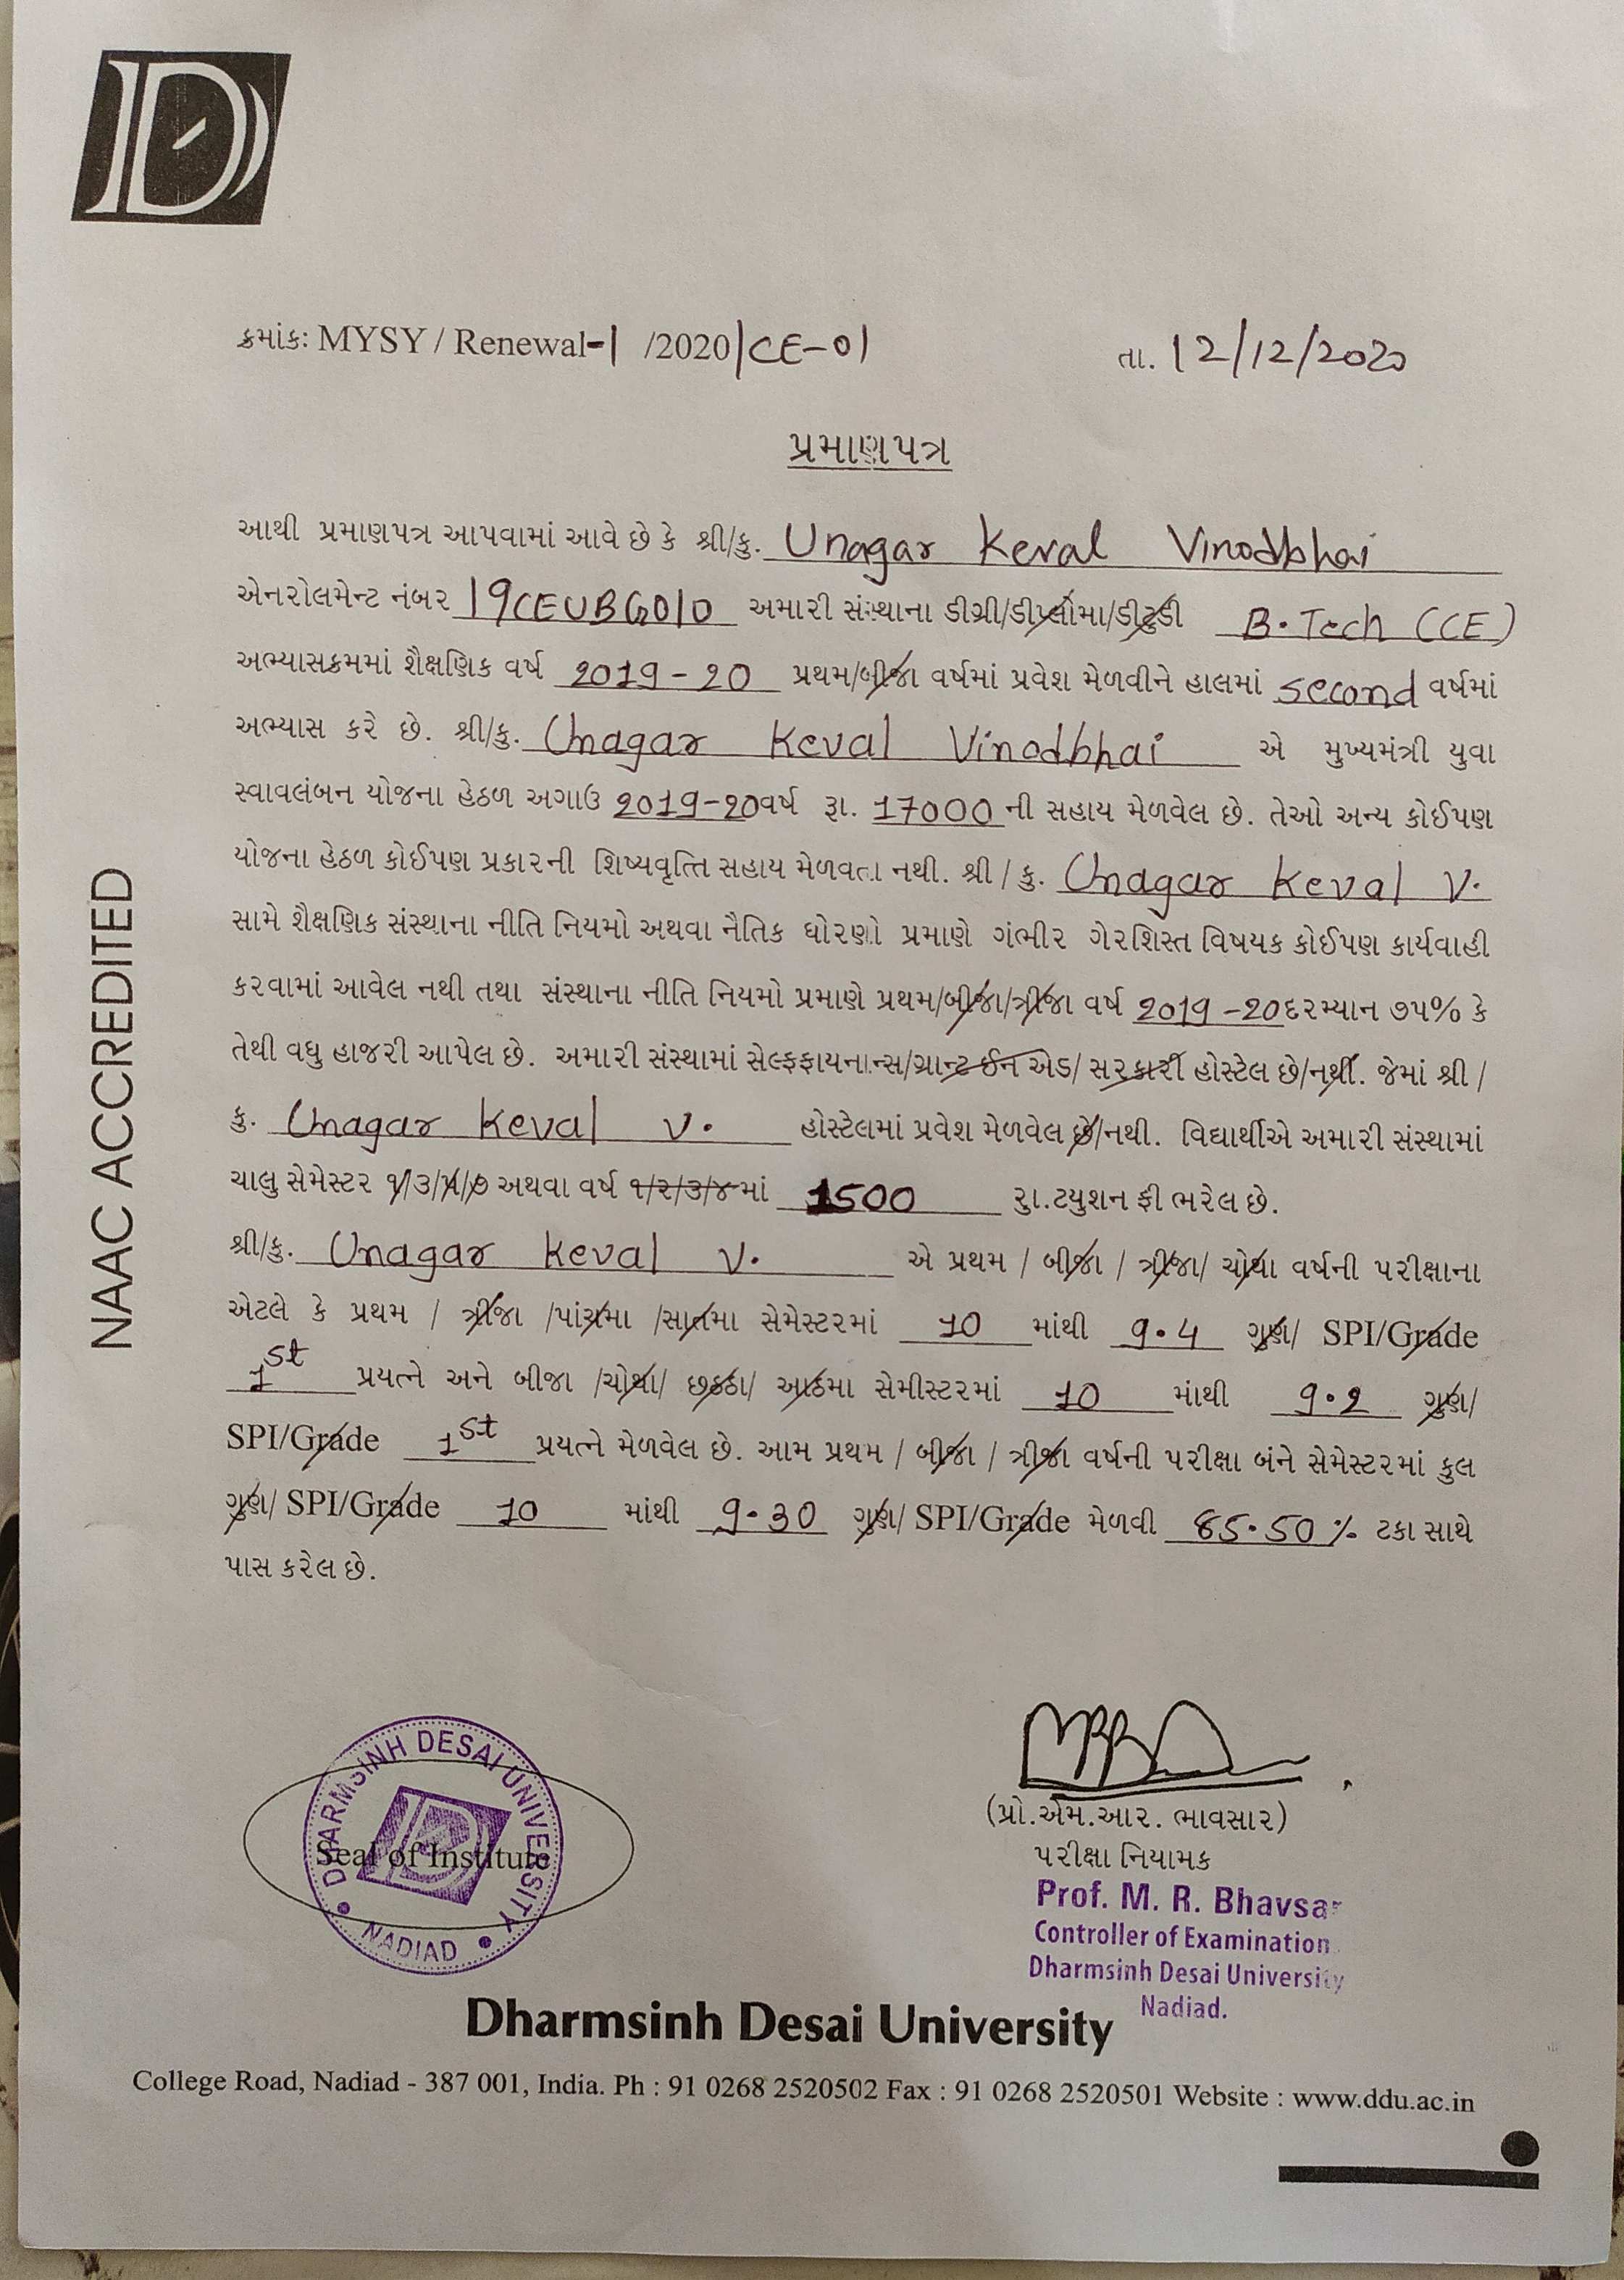 ક્રમાંક: MYSY / Renewal-1 /2020/CE-01
તા. 12/12/2020
પ્રમાણપત્ર
આથી પ્રમાણપત્ર આપવામાં આવે છે કે શ્રી/કુ. Unagar Keval Vinodbhai
એનરોલમેન્ટ નંબર 19CEUBG010 અમારી સંસ્થાના ડીગ્રી/ડીપ્લોમા/ડીટુડી B.Tech (CE)
અભ્યાસક્રમમાં શૈક્ષણિક વર્ષ 2019-20 પ્રથમ/બીજા વર્ષમાં પ્રવેશ મેળવીને હાલમાં second વર્ષમાં
અભ્યાસ કરે છે. શ્રી/કુ. Unagar Keval Vinodbhai એ મુખ્યમંત્રી યુવા
સ્વાવલંબન યોજના હેઠળ અગાઉ 2019-20વર્ષ રૂા. 17000 ની સહાય મેળવેલ છે. તેઓ અન્ય કોઈપણ
યોજના હેઠળ કોઈપણ પ્રકારની શિષ્યવૃત્તિ સહાય મેળવતા નથી. શ્રી / કુ. Unagar Keval V.
સામે શૈક્ષણિક સંસ્થાના નીતિ નિયમો અથવા નૈતિક ધોરણો પ્રમાણે ગંભીર ગેરશિસ્ત વિષયક કોઈપણ કાર્યવાહી
કરવામાં આવેલ નથી તથા સંસ્થાના નીતિ નિયમો પ્રમાણે પ્રથમ/બીજા/ત્રીજા વર્ષ 2019-20દરમ્યાન ૭૫% કે
તેથી વધુ હાજરી આપેલ છે. અમારી સંસ્થામાં સેલ્ફફાયનાન્સ/ગ્રાન્ટ ઈન એડ/ સરકારી હોસ્ટેલ છે/નથી. જેમાં શ્રી /
કુ. Unagar Keval V. હોસ્ટેલમાં પ્રવેશ મેળવેલ છે/નથી. વિદ્યાર્થીએ અમારી સંસ્થામાં
ચાલુ સેમેસ્ટર ૧/૩/૫/૭ અથવા વર્ષ ૧/૨/૩/૪માં 1500 રુા.ટયુશન ફી ભરેલ છે.
શ્રી/કુ. Unagar Keval V. એ પ્રથમ / બીજા / ત્રીજા/ ચોથા વર્ષની પરીક્ષાના
એટલે કે પ્રથમ / ત્રીજા /પાંચમા /સાતમા સેમેસ્ટરમાં 10 માંથી 9.4 ગુણ/ SPI/Grade
1st પ્રયત્ને અને બીજા /ચોથા/ છઠ્ઠા/ આઠમા સેમીસ્ટરમાં 10 માંથી 9.2 ગુણ/
SPI/Grade 1st પ્રયત્ને મેળવેલ છે. આમ પ્રથમ / બીજા / ત્રીજા વર્ષની પરીક્ષા બંને સેમેસ્ટરમાં કુલ
ગુણ/ SPI/Grade 10 માંથી 9.30 ગુણ/ SPI/Grade મેળવી 85.50 % ટકા સાથે
પાસ કરેલ છે.
NAAC ACCREDITED
DHARMSINH DESAI UNIVERSITY
NADIAD
Seal of Institute
(પ્રો.એમ.આર. ભાવસાર)
પરીક્ષા નિયામક
Prof. M. R. Bhavsar
Controller of Examination
Dharmsinh Desai University
Nadiad.
Dharmsinh Desai University
College Road, Nadiad - 387 001, India. Ph : 91 0268 2520502 Fax : 91 0268 2520501 Website : www.ddu.ac.in